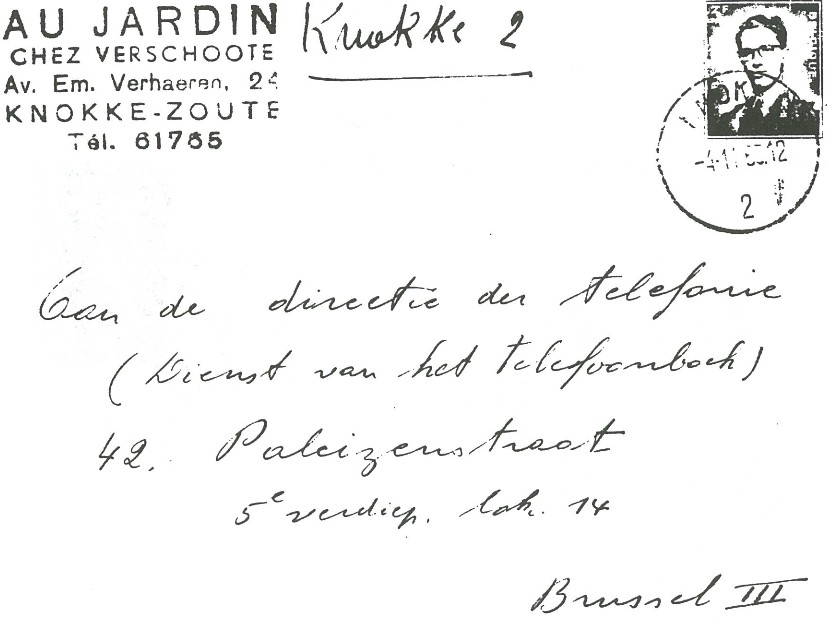 AU JARDIN
CHEZ VERSCHOOTE
Av. Em. Verhaeren, 24
KNOKKE-ZOUTE
Tél. 61765
Knokke 2
KNOK
-4-11 12
2
Aan de directie der telefonie
(Dienst van het telefoonboek)
42. Paleizenstraat
5e verdiep. lok. 14
Brussel III